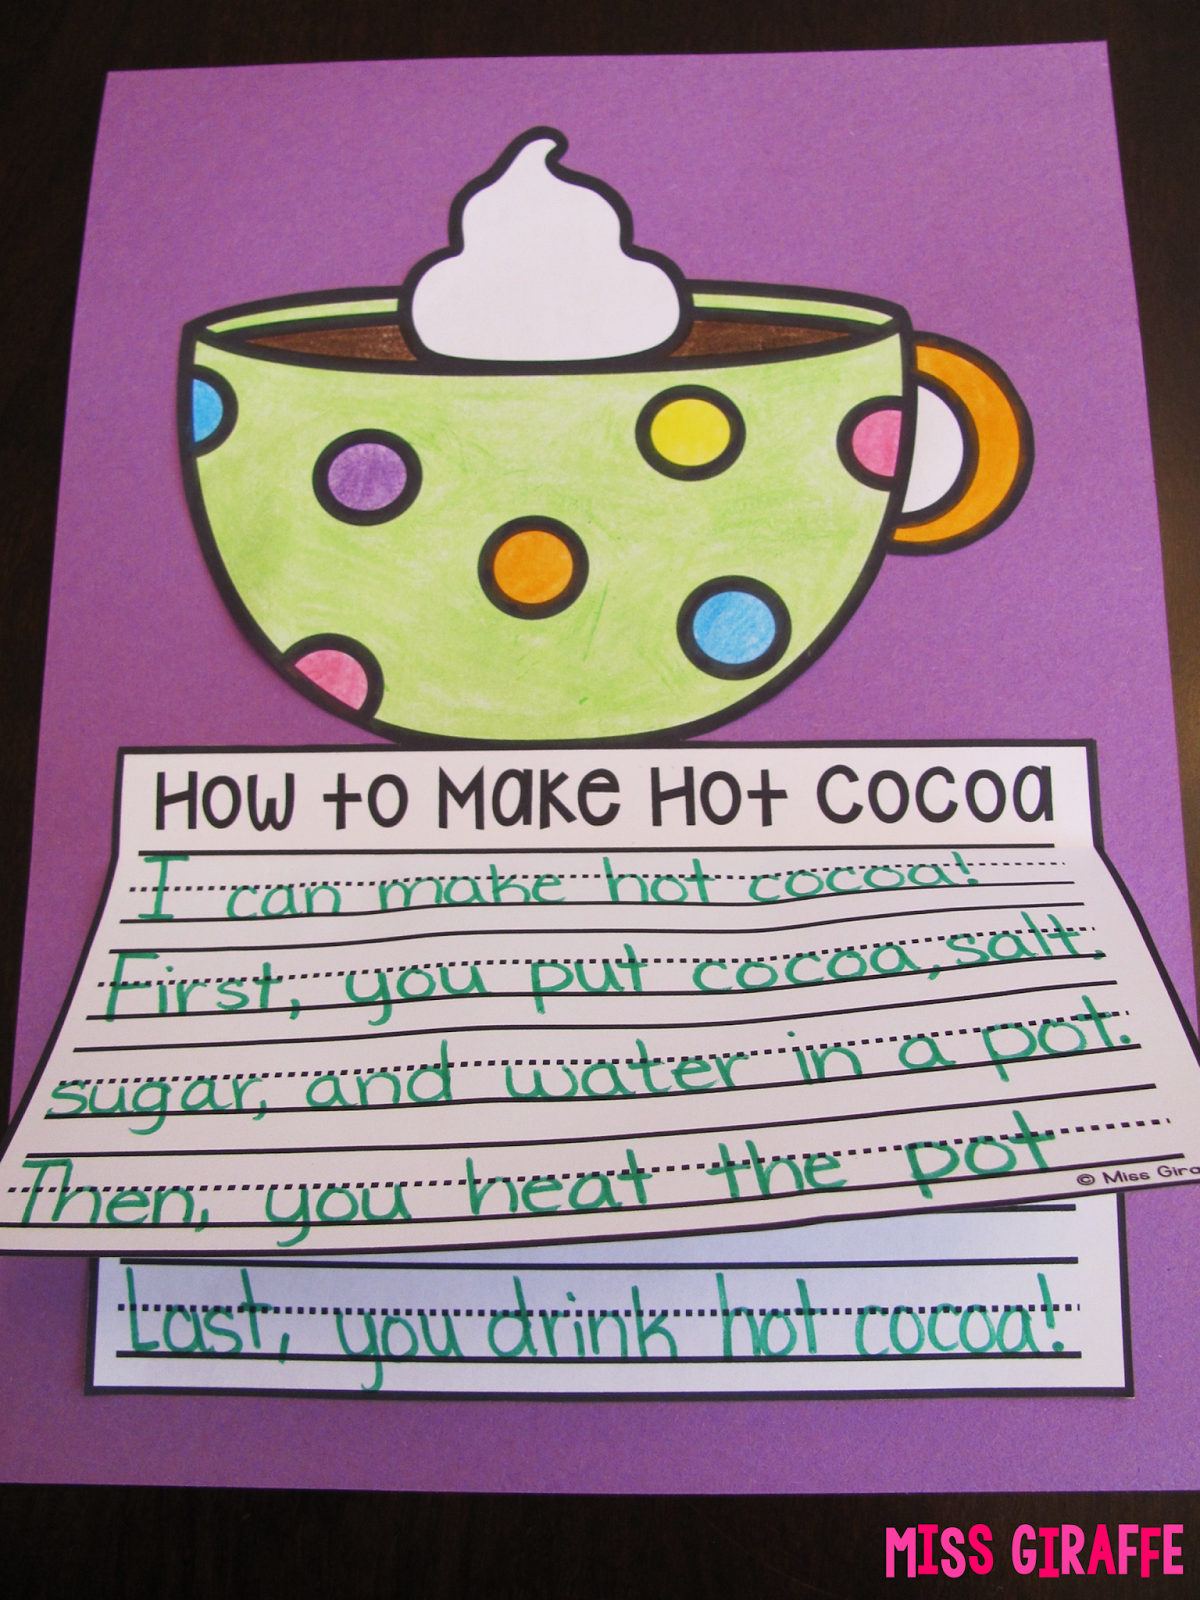 How to Make Hot Cocoa
I can make hot cocoa!
First, you put cocoa, salt,
sugar, and water in a pot.
Then, you heat the pot
© Miss Gira
Last, you drink hot cocoa!
MISS GIRAFFE